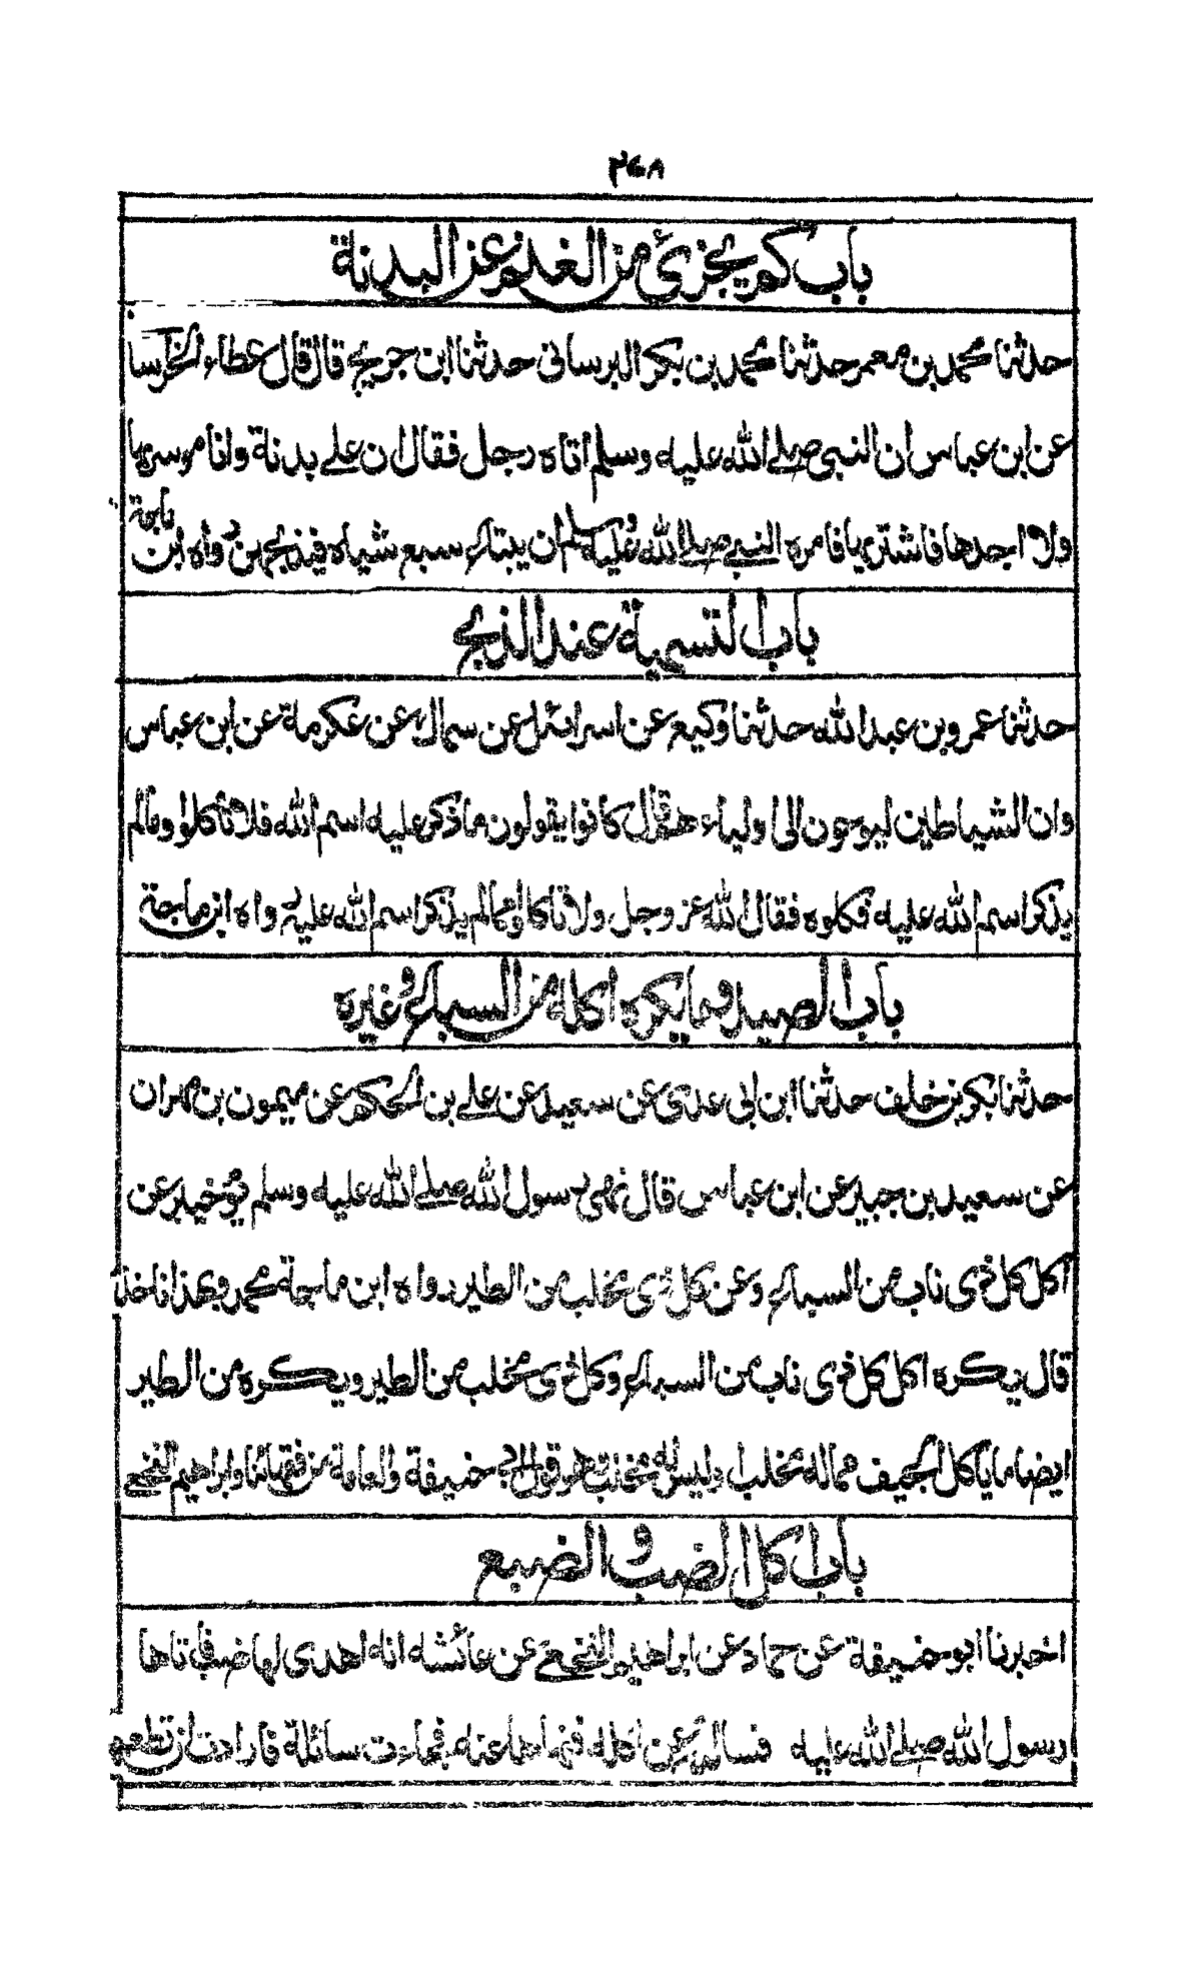 ٢٦٨
باب كم يجزئ من الغنم عن البدنة
حدثنا محمد بن معمر حدثنا محمد بن بكر البرسانى حدثنا ابن جريج قال قال عطاء الخراسا
عن ابن عباس ان النبى صلے الله عليه وسلم اتاه رجل فقال ان علے بدنة وانا موسر بها
ولا اجدها فاشتريها فامره النبے صلے الله عليه وسلم ان يبتاع سبع شياه فيذبحهن رواه ابن ماجة
باب التسمية عند الذبح
حدثنا عمرو بن عبد الله حدثنا وكيع عن اسرائيل عن سماك عن عكرمة عن ابن عباس
وان الشياطين ليوحون الى اولياءهم قال كانوا يقولون ما ذكر عليه اسم الله فلا تأكلوا ومالم
يذكر اسم الله عليه فكلوه فقال الله عز وجل ولا تاكلوا ممالم يذكر اسم الله عليه رواه ابن ماجة
باب الصيد وما يكره اكله من السباع وغيره
حدثنا بكر بن خلف حدثنا ابن ابى عدى عن سعيد عن علے بن الحكم عن ميمون بن مهران
عن سعيد بن جبير عن ابن عباس قال نهى رسول الله صلے الله عليه وسلم يوم خيبر عن
اكل كل ذى ناب من السباع وعن كل ذى مخلب من الطير رواه ابن ماجة محمد وبهذا ناخذ
قال يكره اكل كل ذى ناب من السباع وكل ذى مخلب من الطير ويكره من الطير
ايضا ما ياكل الجيف مما له مخلب او ليس له مخلب هو قول ابى حنيفة والعامة من فقهائنا وابراهيم النخعے
باب اكل الضب والضبع
اخبرنا ابو حنيفة عن حماد عن ابراهيم النخعے عن عائشه انه اهدى لها ضب فاتاها
رسول الله صلے الله عليه فسالته عن اكله فنهاها عنه فجاءت سائلة فارادت ان تطعمها